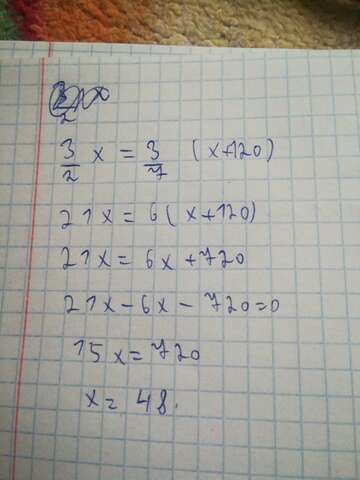 3/2 x = 3/7 (x+120)
21x = 6(x+120)
21x = 6x + 720
21x - 6x - 720 = 0
15x = 720
x = 48.